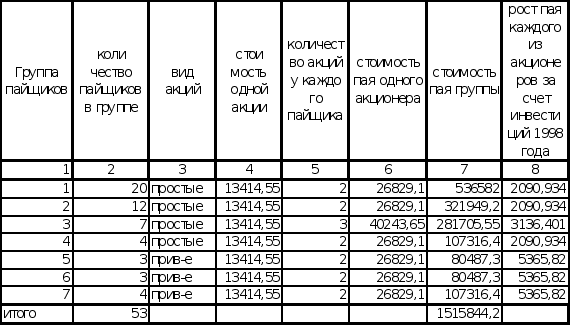 Группа пайщиков | коли чество пайщиков в группе | вид акций | стои мость одной акции | количест во акций у каждо го пайщика | стоимость пая одного акционера | стоимость пая группы | рост пая каждого из акционе ров за счет инвести ций 1998 года
1 | 2 | 3 | 4 | 5 | 6 | 7 | 8
1 | 20 | простые | 13414,55 | 2 | 26829,1 | 536582 | 2090,934
2 | 12 | простые | 13414,55 | 2 | 26829,1 | 321949,2 | 2090,934
3 | 7 | простые | 13414,55 | 3 | 40243,65 | 281705,55 | 3136,401
4 | 4 | простые | 13414,55 | 2 | 26829,1 | 107316,4 | 2090,934
5 | 3 | прив-е | 13414,55 | 2 | 26829,1 | 80487,3 | 5365,82
6 | 3 | прив-е | 13414,55 | 2 | 26829,1 | 80487,3 | 5365,82
7 | 4 | прив-е | 13414,55 | 2 | 26829,1 | 107316,4 | 5365,82
итого | 53 | 1515844,2